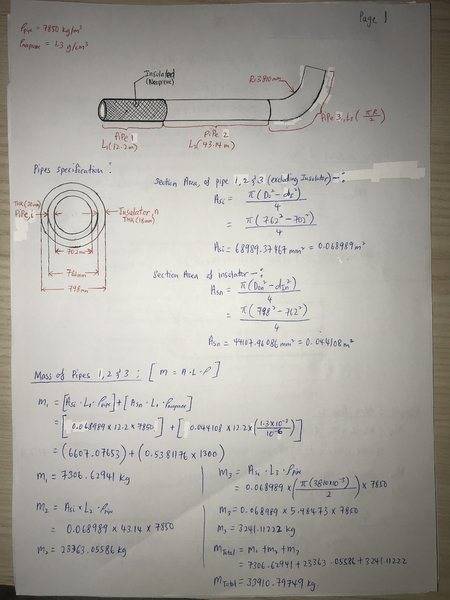 Page 1
ρpipe = 7850 kg/m³
ρneoprene = 1.3 g/cm³
Insulated
(Neoprene)
R=3810mm
Pipe 1
L₁(12.2m)
Pipe 2
L₂(43.14m)
Pipe 3, L₃(πR/2)
Pipes specification :
Section Area, of pipe 1, 2 & 3 (excluding Insulator) -:
THK (30mm)
Pipe, i
Insulator, n
THK (18mm)
702mm
762mm
798mm
Asi = π(Do² - di²)/4
= π(762² - 702²)/4
Asi = 68989.37467 mm² = 0.068989m²
Section Area of insulator -:
Asn = π(Don² - din²)/4
= π(798² - 762²)/4
Asn = 44107.96086 mm² = 0.044108 m²
Mass of Pipes 1, 2 & 3 ; [ m = A·L·ρ ]
m₁ = [Asi · L₁ · ρpipe] + [Asn · L₁ · ρneoprene]
= [0.068989 x 12.2 x 7850] + [0.044108 x 12.2 x (1.3x10⁻³/10⁻⁶)]
= (6607.07653) + (0.5381176 x 1300)
m₁ = 7306.62941 kg
m₂ = Asi x L₂ · ρpipe
= 0.068989 x 43.14 x 7850
m₂ = 23363.05586 kg
m₃ = Asi · L₃ · ρpipe
= 0.068989 x (π(3810x10⁻³)/2) x 7850
m₃ = 0.068989 x 5.98473 x 7850
m₃ = 3241.11222 kg
mTotal = m₁ + m₂ + m₃
= 7306.62941 + 23363.05586 + 3241.11222
mTotal = 33910.79749 kg